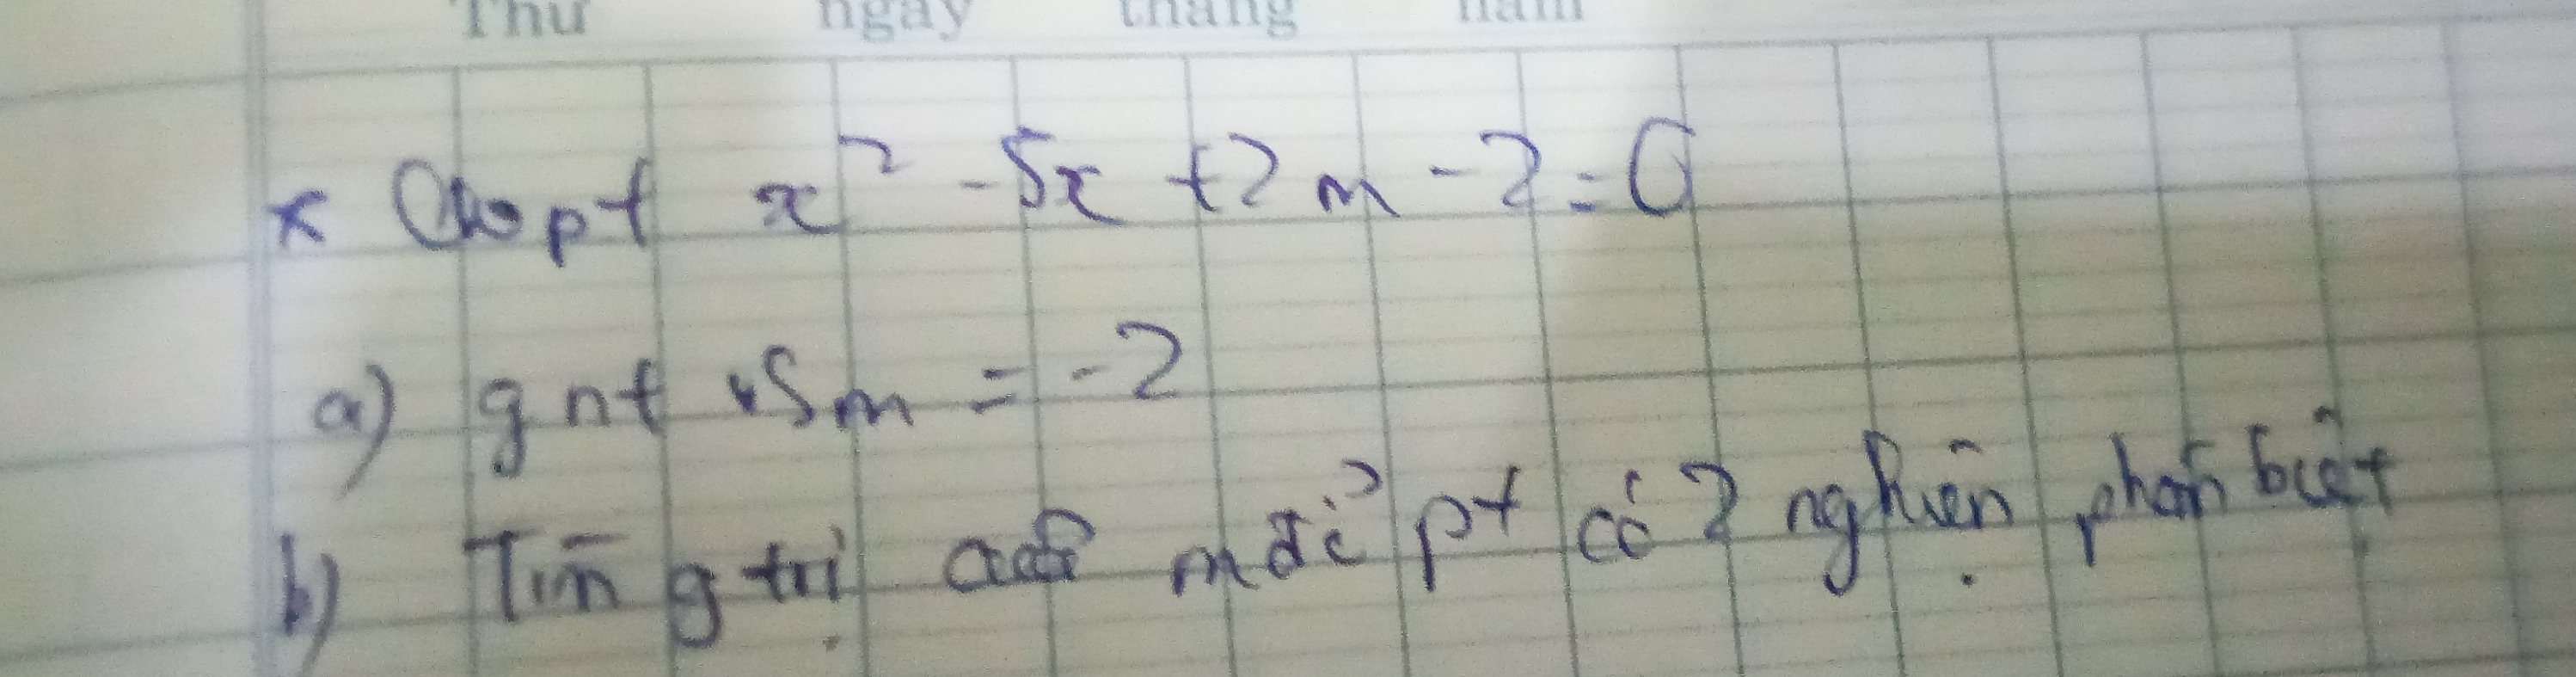 Thứ ngày tháng năm
* Cho pt x² - 5x + 2m - 2 = 0
a) g pt vs m = -2
b) Tìm g trị của m để pt có 2 nghiệm phân biệt